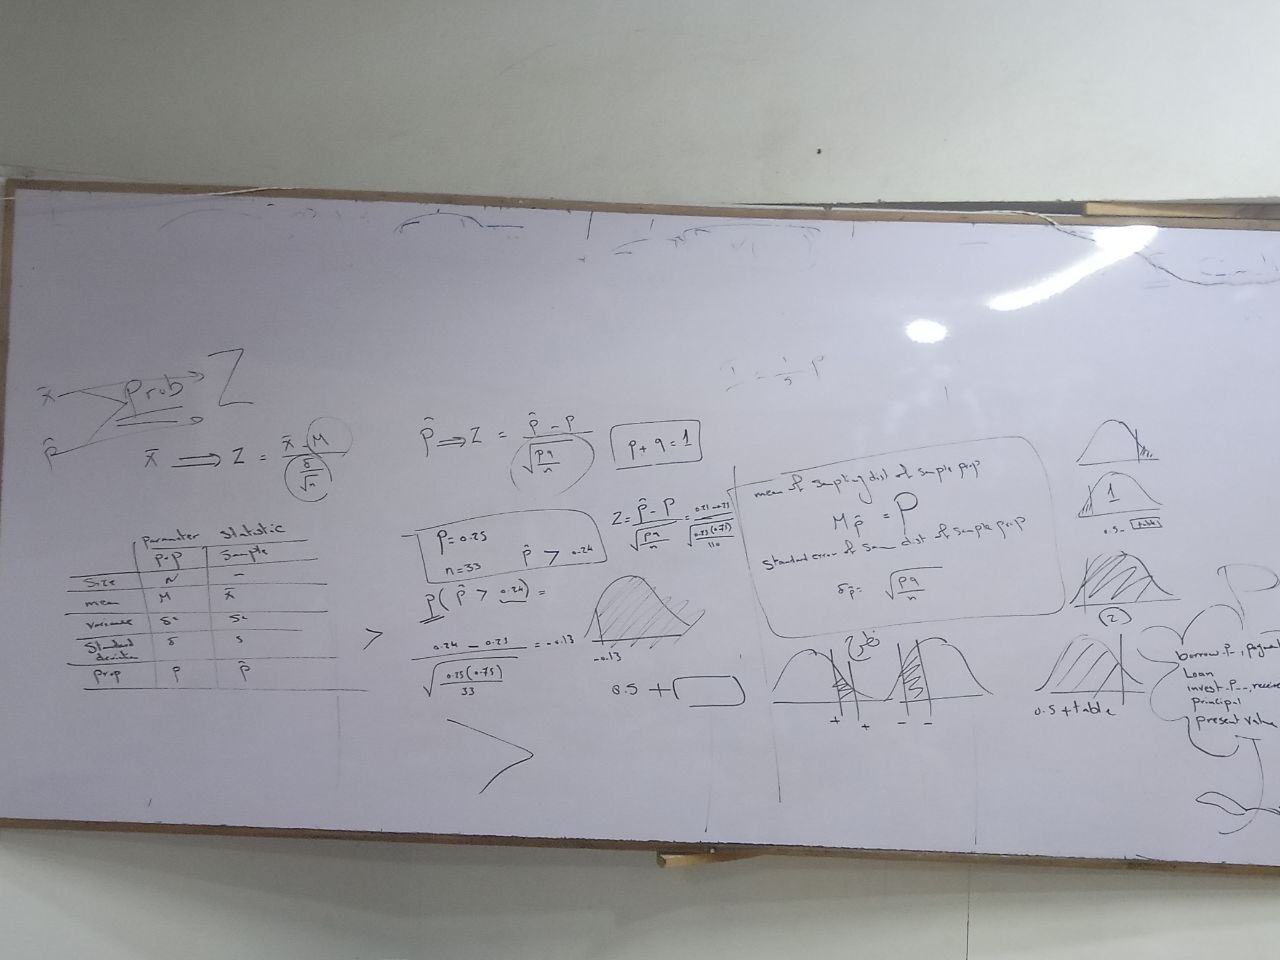 x̄
Prob
Z
p̂
x̄ ⟹ Z = (x̄ - M) / (δ/√n)
parameter statistic
pop sample
Size N -
mean M x̄
variance δ² S²
Standard deviation δ s
prop p p̂
>
p̂ ⟹ Z = (p̂ - p) / √(pq/n)
p + q = 1
p = 0.25
n = 33 p̂ > 0.24
p(p̂ > 0.24) =
(0.24 - 0.25) / √(0.25(0.75)/33) = -0.13
-0.13
0.5 +
Z = (p̂ - p) / √(pq/n) =
mean of sampling dist of sample prop
M p̂ = p
Standard error of sam dist of sample prop
δp̂ = √(pq/n)
+ +
- -
1
0.5 - table
(2)
0.5 + table
P
borrow
Loan
invest
principal
present value